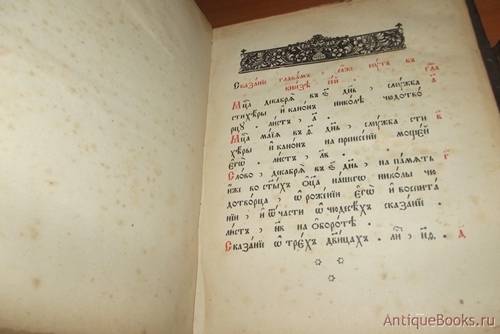 Сказанїѐ главамъ, ꙗ҆́же сꙋ́ть въ
кни́зѣ се́й. гла
Мц҃а декабрѧ̀ въ ѕ҃ дн҃ь, слꙋ́жба а҃
стихе́ры и҆ кано́нъ нико́лѣ чюдотво́
рцꙋ. ли́стъ, а҃.
Мц҃а ма́їѧ въ ѳ҃ дн҃ь, слꙋ́жба сти в҃
хе́ры и҆ кано́нъ на принесе́нїи моще́й
є҆гѡ̀. ли́стъ, лв҃.
Сло́во, декабрѧ̀ въ ѕ҃ дн҃ь, на па́мѧть г҃
и҆́же во ст҃ы́хъ ѻ҆ц҃а̀ на́шегѡ нико́лы чю
дотво́рца, ѡ҆ роже́нїи є҆гѡ̀ и҆ воспита
нїи, и҆ ѿ ча́сти ѡ҆ чюдесѣ́хъ сказа́нїѐ
ли́стъ, н҃в на ѻ҆боро́тѣ.
Сказа́нїѐ ѡ҆ трє́хъ дв҃и́цахъ. ли́,
AntiqueBooks.ru